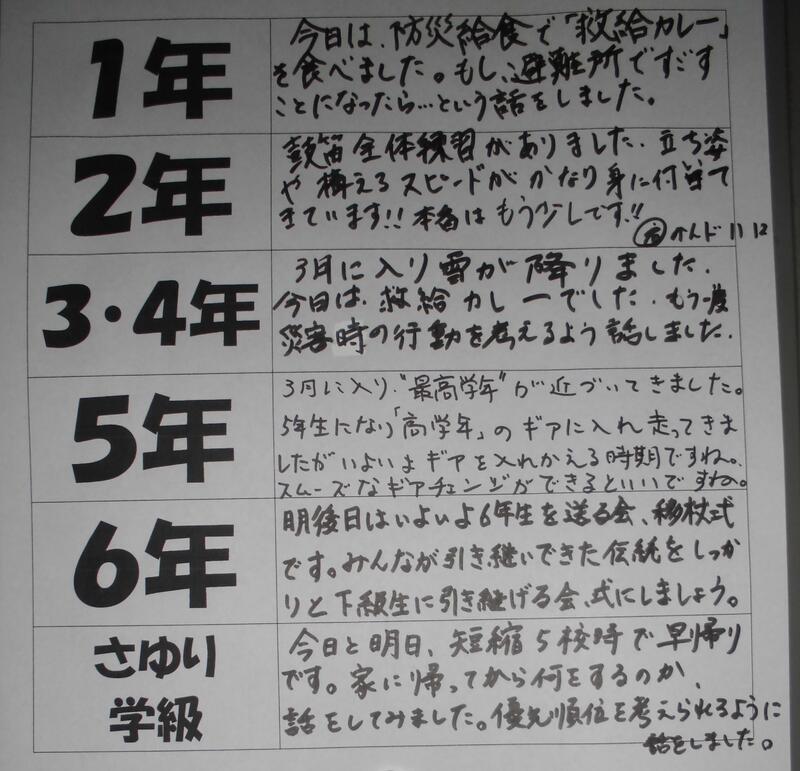 1年
今日は、防災給食で「救給カレー」
を食べました。もし、避難所ですごす
ことになったら…という話をしました。
2年
鼓笛全体練習がありました。立ち姿
や構えるスピードがかなり身に付いて
きています!!本番はもう少しです!!
3・4年
3月に入り雪が降りました。
今日は、救給カレーでした。もう一度
災害時の行動を考えるよう話しました。
5年
3月に入り、"最高学年"が近づいてきました。
5年生になり「高学年」のギアに入れ走ってきま
したがいよいよギアを入れかえる時期ですね。
スムーズなギアチェンジができるといいですね。
6年
明後日はいよいよ6年生を送る会、移杖式
です。みんなが引き継いできた伝統をしっか
りと下級生に引き継げる会、式にしましょう。
さゆり
学級
今日と明日、短縮5校時で早帰り
です。家に帰ってから何をするのか、
話をしてみました。優先順位を考えられるように
話をしました。